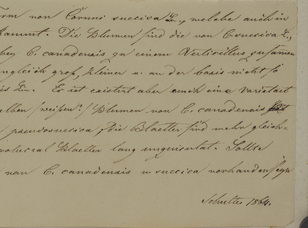 von Cornus suecica L., welche auch in
stammt. Die Blumen sind die von C. suecica L.,
bey C. canadensis zu einem Verticillus zusammen
ungleich groß, kleiner u. an der Basis nicht so
Es existirt aber auch eine Varietaet
Blumen von C. canadensis
pseudosuecica, die Blaetter sind mehr gleich-
Blaetter lang Sollte
von C. canadensis u suecica vorhanden seyn
Schultes 1864.